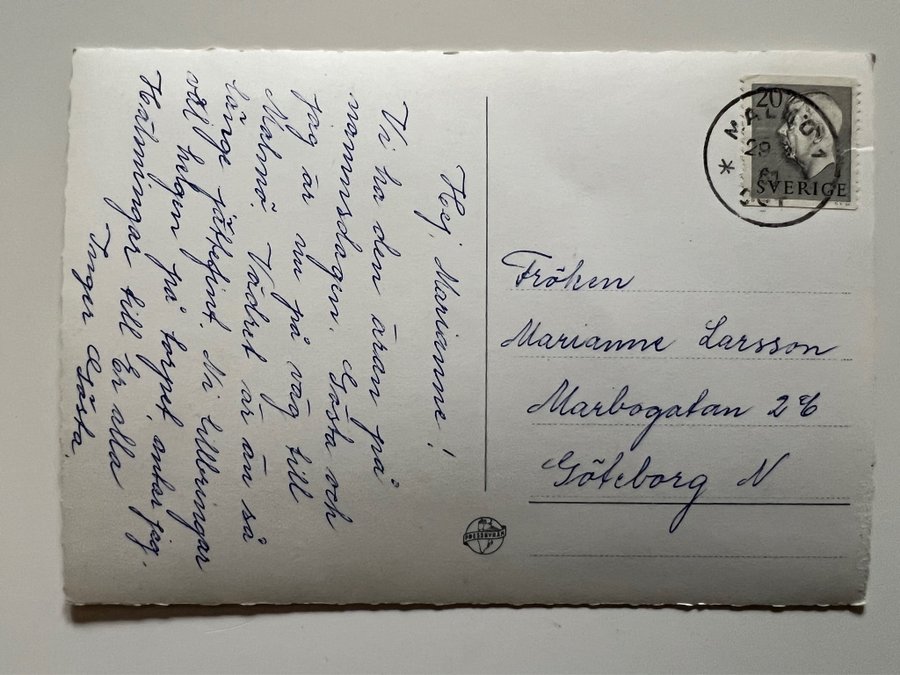 Hej, Marianne!
Vi ha den äran på
namnsdagen. Gösta och
jag är nu på väg till
Malmö. Vädret är än så
länge jättefint. Ni tillbringar
väl helgen på torpet, antar jag.
Hälsningar till Er alla
Inger Gösta.
20
MALMÖ 1
29
61
SVERIGE
Fröken
Marianne Larsson
Marbogatan 2 C
Göteborg N